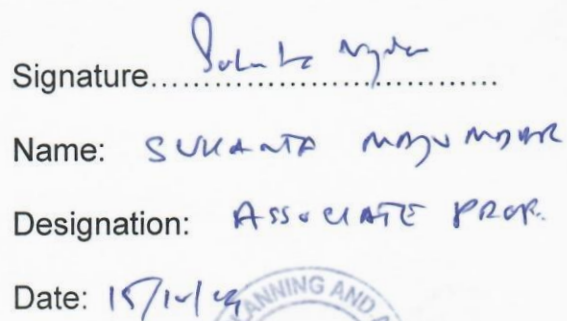 Signature..................................
Name: SUKANTA MAJUMDAR
Designation: ASSOCIATE PROF.
Date:
ANNING AND A